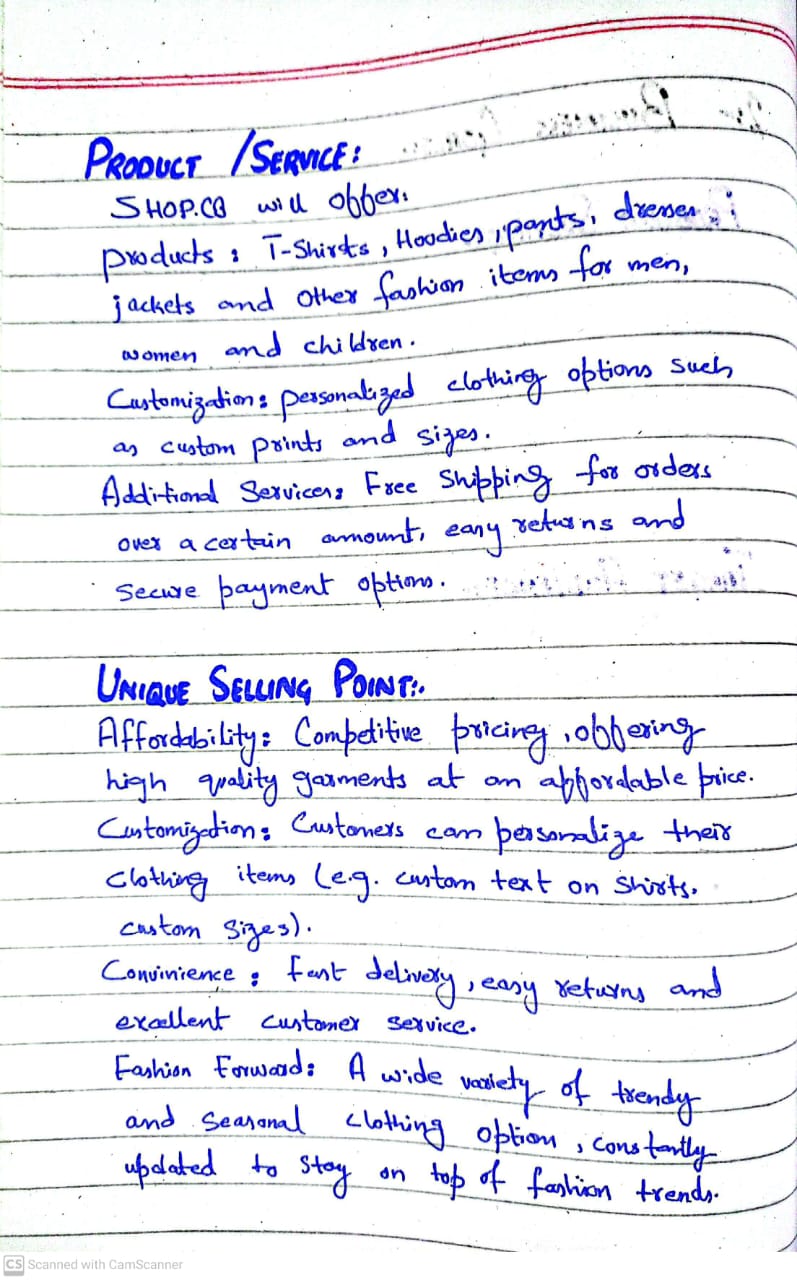 PRODUCT / SERVICE:
SHOP.CO will offer:
products: T-Shirts, Hoodies, pants, dresses,
jackets and other fashion items for men,
women and children.
Customization: personalized clothing options such
as custom prints and sizes.
Additional Services: Free Shipping for orders
over a certain amount, easy returns and
secure payment options.
UNIQUE SELLING POINT:
Affordability: Competitive pricing, offering
high quality garments at an affordable price.
Customization: Customers can personalize their
clothing items (e.g. custom text on shirts,
custom sizes).
Convinience: fast delivery, easy returns and
excellent customer service.
Fashion Forward: A wide variety of trendy
and seasonal clothing option, constantly
updated to stay on top of fashion trends.
CS Scanned with CamScanner